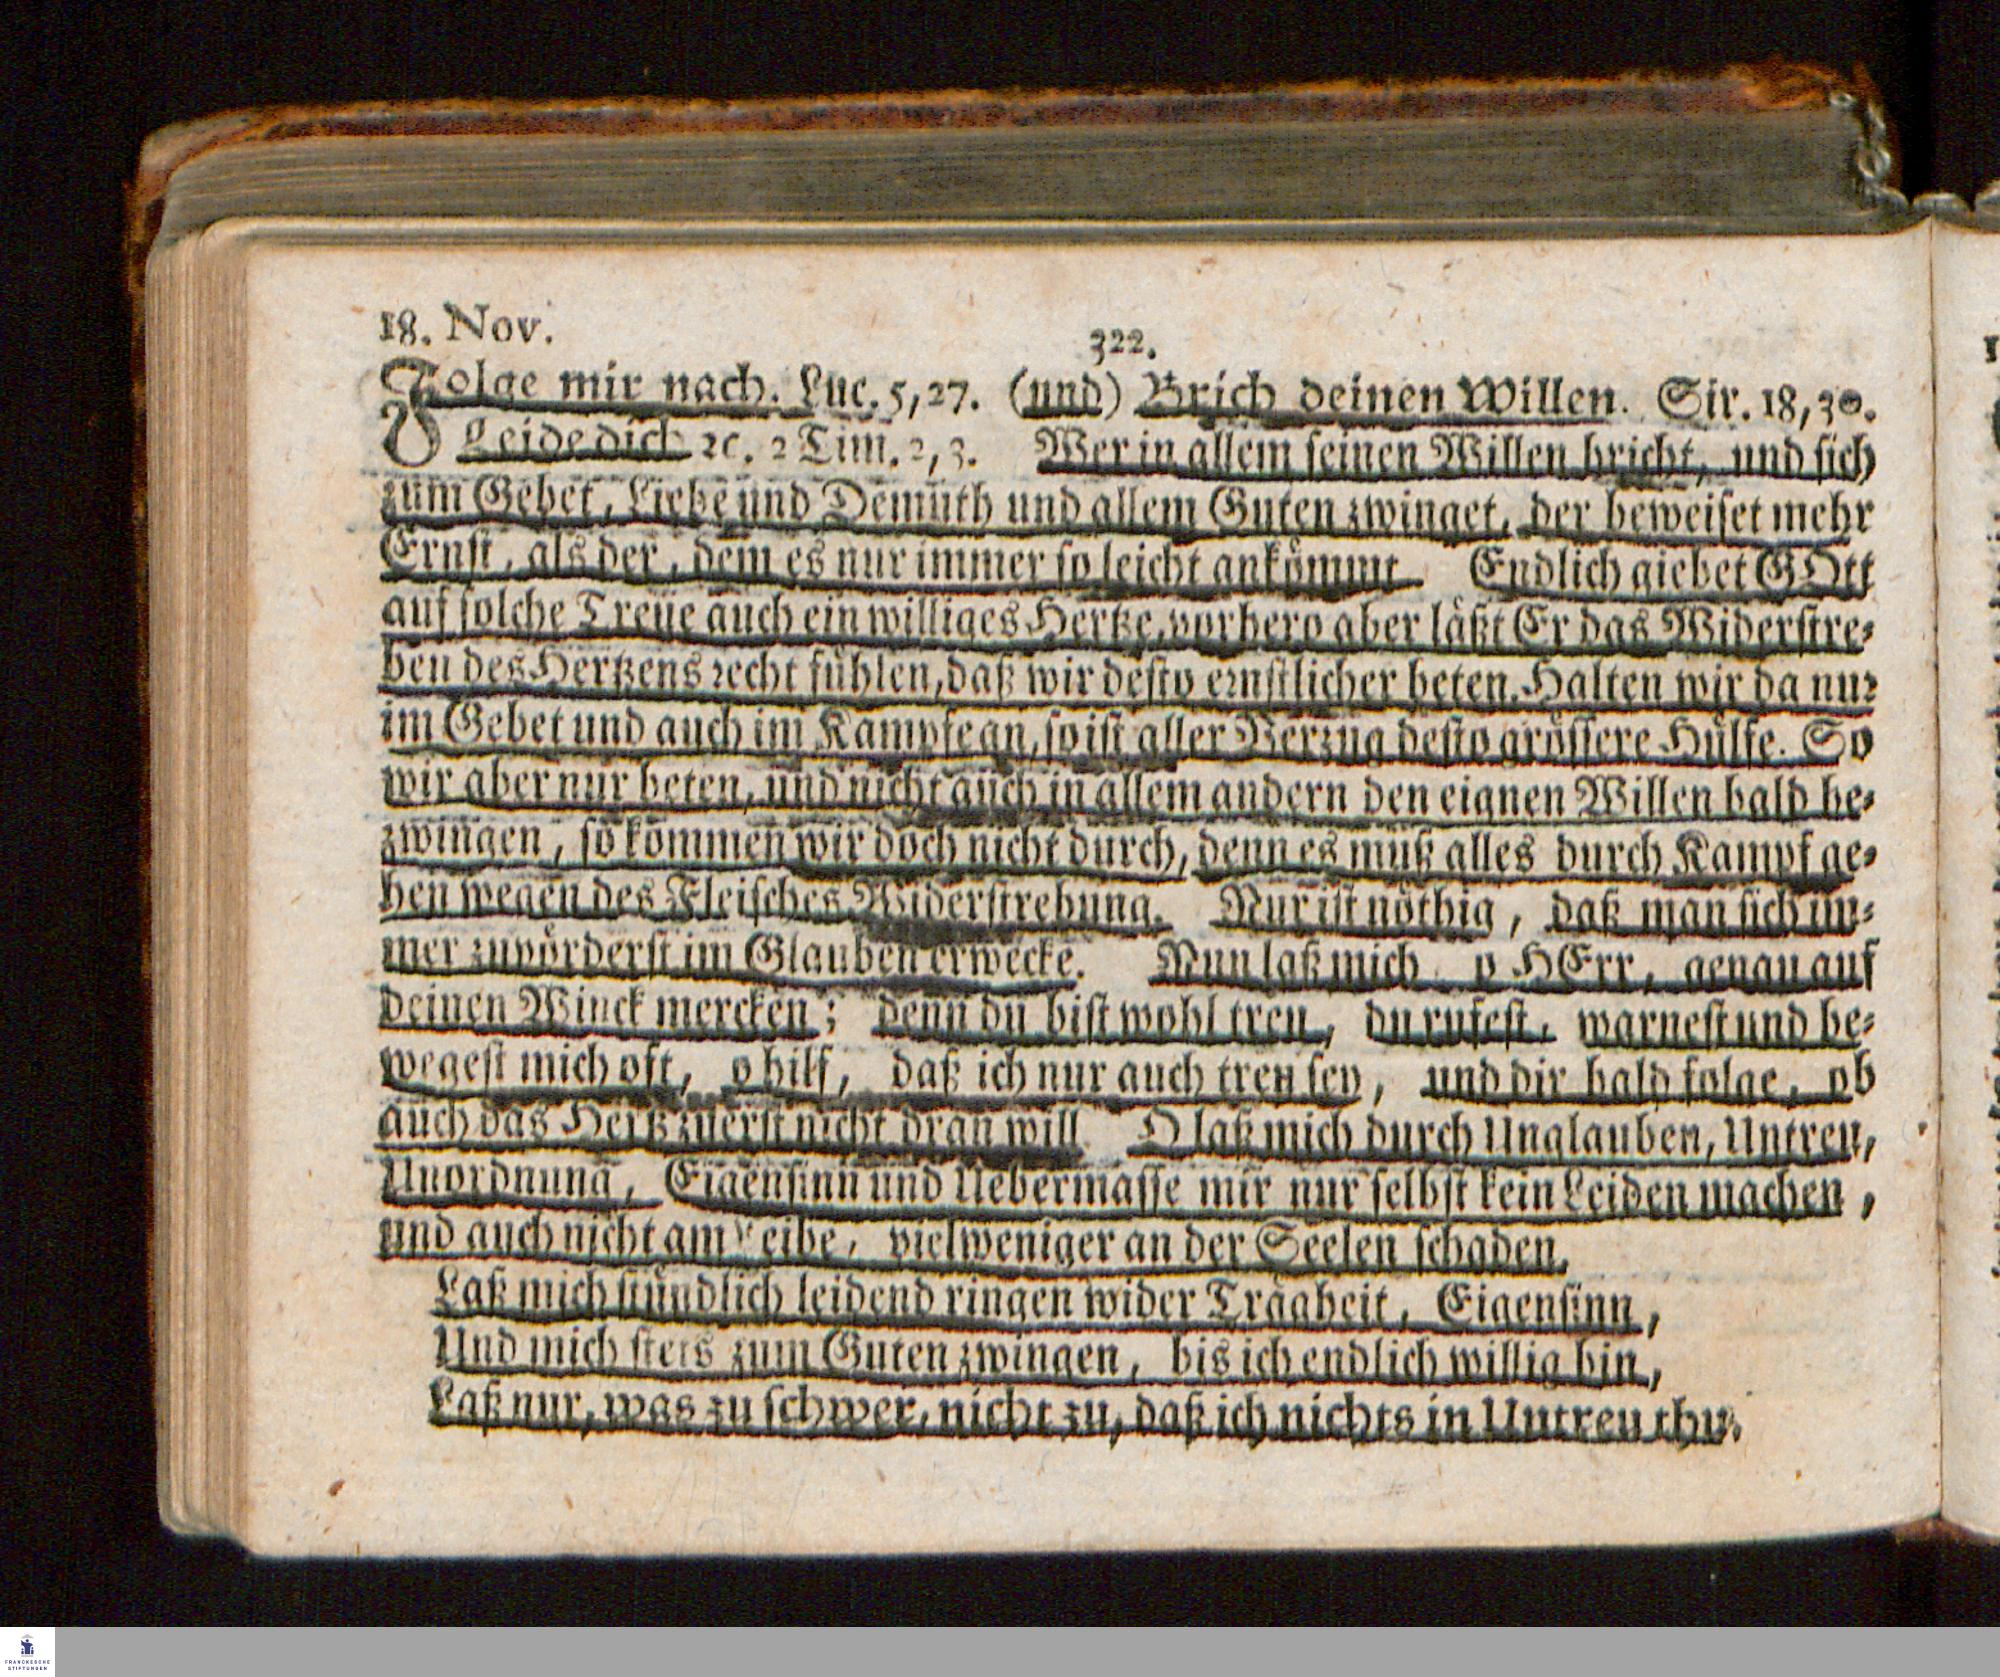 18. Nov.
322.
Folge mir nach. Luc. 5, 27. (und) Brich deinen Willen. Sir. 18, 30.
Leide dich ꝛc. 2 Tim. 2, 3. Wer in allem seinen Willen bricht, und sich
zum Gebet, Liebe und Demuth und allem Guten zwinget, der beweiset mehr
Ernst, als der, dem es nur immer so leicht ankömmt. Endlich giebet GOtt
auf solche Treue auch ein williges Hertze, vorhero aber läßt Er das Widerstre-
ben des Hertzens recht fühlen, daß wir desto ernstlicher beten. Halten wir da nur
im Gebet und auch im Kampfe an, so ist aller Verzug desto grössere Hülfe. So
wir aber nur beten, und nicht auch in allem andern den eignen Willen bald be-
zwingen, so kommen wir doch nicht durch, denn es muß alles durch Kampf ge-
hen wegen des Fleisches Widerstrebung. Nur ist nöthig, daß man sich im-
mer zuvörderst im Glauben erwecke. Nun laß mich, o HErr, genau auf
deinen Winck mercken; denn du bist wohl treu, du rufest, warnest und be-
wegest mich oft, o hilf, daß ich nur auch treu sey, und dir bald folge, ob
auch das Hertz zuerst nicht dran will. O laß mich durch Unglauben, Untreu,
Unordnung, Eigensinn und Uebermasse mir nur selbst kein Leiden machen,
und auch nicht am Leibe, vielweniger an der Seelen schaden.
Laß mich stündlich leidend ringen wider Trägheit, Eigensinn,
Und mich stets zum Guten zwingen, bis ich endlich willig bin,
Laß nur, was zu schwer, nicht zu, daß ich nichts in Untreu thu.
FRANCKESCHE
STIFTUNGEN